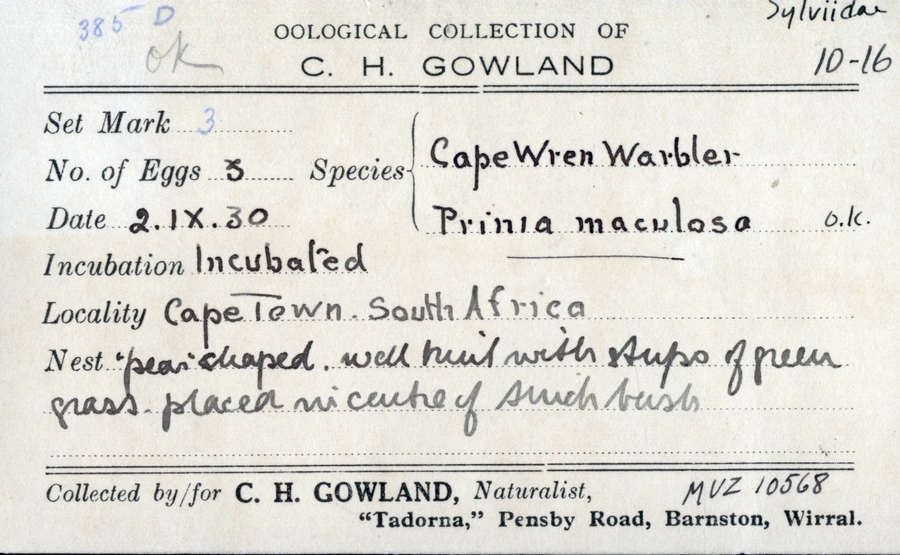 385 D
Sylviidae
ok
OOLOGICAL COLLECTION OF
C. H. GOWLAND
10-16
Set Mark 3
No. of Eggs 3 Species Cape Wren Warbler
Date 2.IX.30 Prinia maculosa o.k.
Incubation Incubated
Locality Cape Town. South Africa
Nest "pear" shaped. well built with strips of green
grass. placed in centre of bush
Collected by/for C. H. GOWLAND, Naturalist, MVZ 10568
"Tadorna," Pensby Road, Barnston, Wirral.